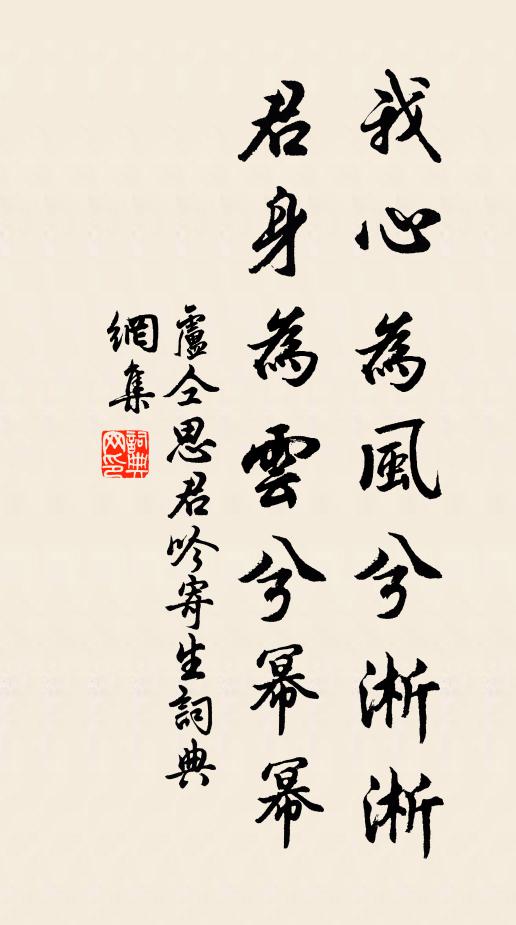 我心為風兮淅淅
君身為雲兮冪冪
盧仝思君吟寄生詞典
網集
詞典
网印